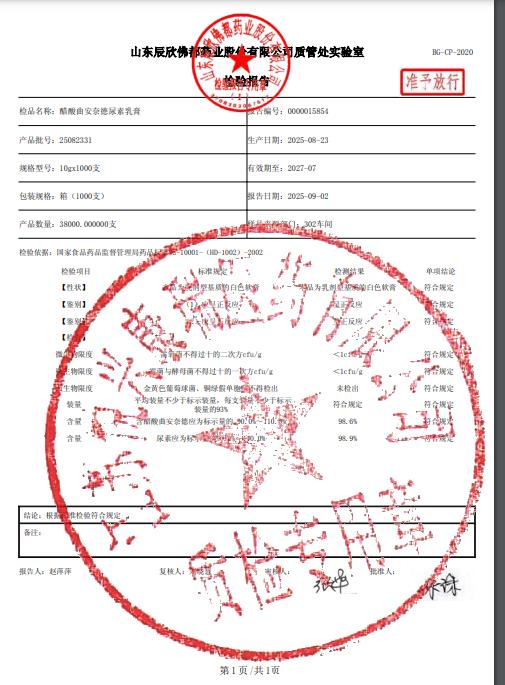 山东辰欣佛都药业股份有限公司质管处实验室
BG-CP-2020
检验报告
准予放行
检品名称: 醋酸曲安奈德尿素乳膏
报告编号: 0000015854
产品批号: 25082331
生产日期: 2025-08-23
规格型号: 10gx1000支
有效期至: 2027-07
包装规格: 箱（1000支）
报告日期: 2025-09-02
产品数量: 38000.000000支
302车间
检验依据: 国家食品药品监督管理局药品 -10001-（HD-1002）-2002
检验项目 标准规定 检测结果 单项结论
【性状】 的白色软膏 品为乳剂型基质的白色软膏 符合规定
【鉴别】 应呈正反应 呈正反应 符合规定
【鉴别】 正反应 正反应 符合规定
微生物限度 需氧菌不得过十的二次方cfu/g <1cfu/g 符合规定
生物限度 霉菌与酵母菌不得过十的一次方cfu/g <1cfu/g 符合规定
生物限度 金黄色葡萄球菌、铜绿假单胞 不得检出 未检出 符合规定
装量 平均装量不少于标示装量，每支装量不少于标示装量的93% 符合规定 符合规定
含量 含醋酸曲安奈德应为标示量的90.0%-110. 98.6% 符合规定
含量 尿素应为标 98.9% 符合规定
结论: 根据 准检验符合规定
备注:
报告人: 赵萍萍 复核人: 审核人: 批准人:
第 1 页 /共 1页